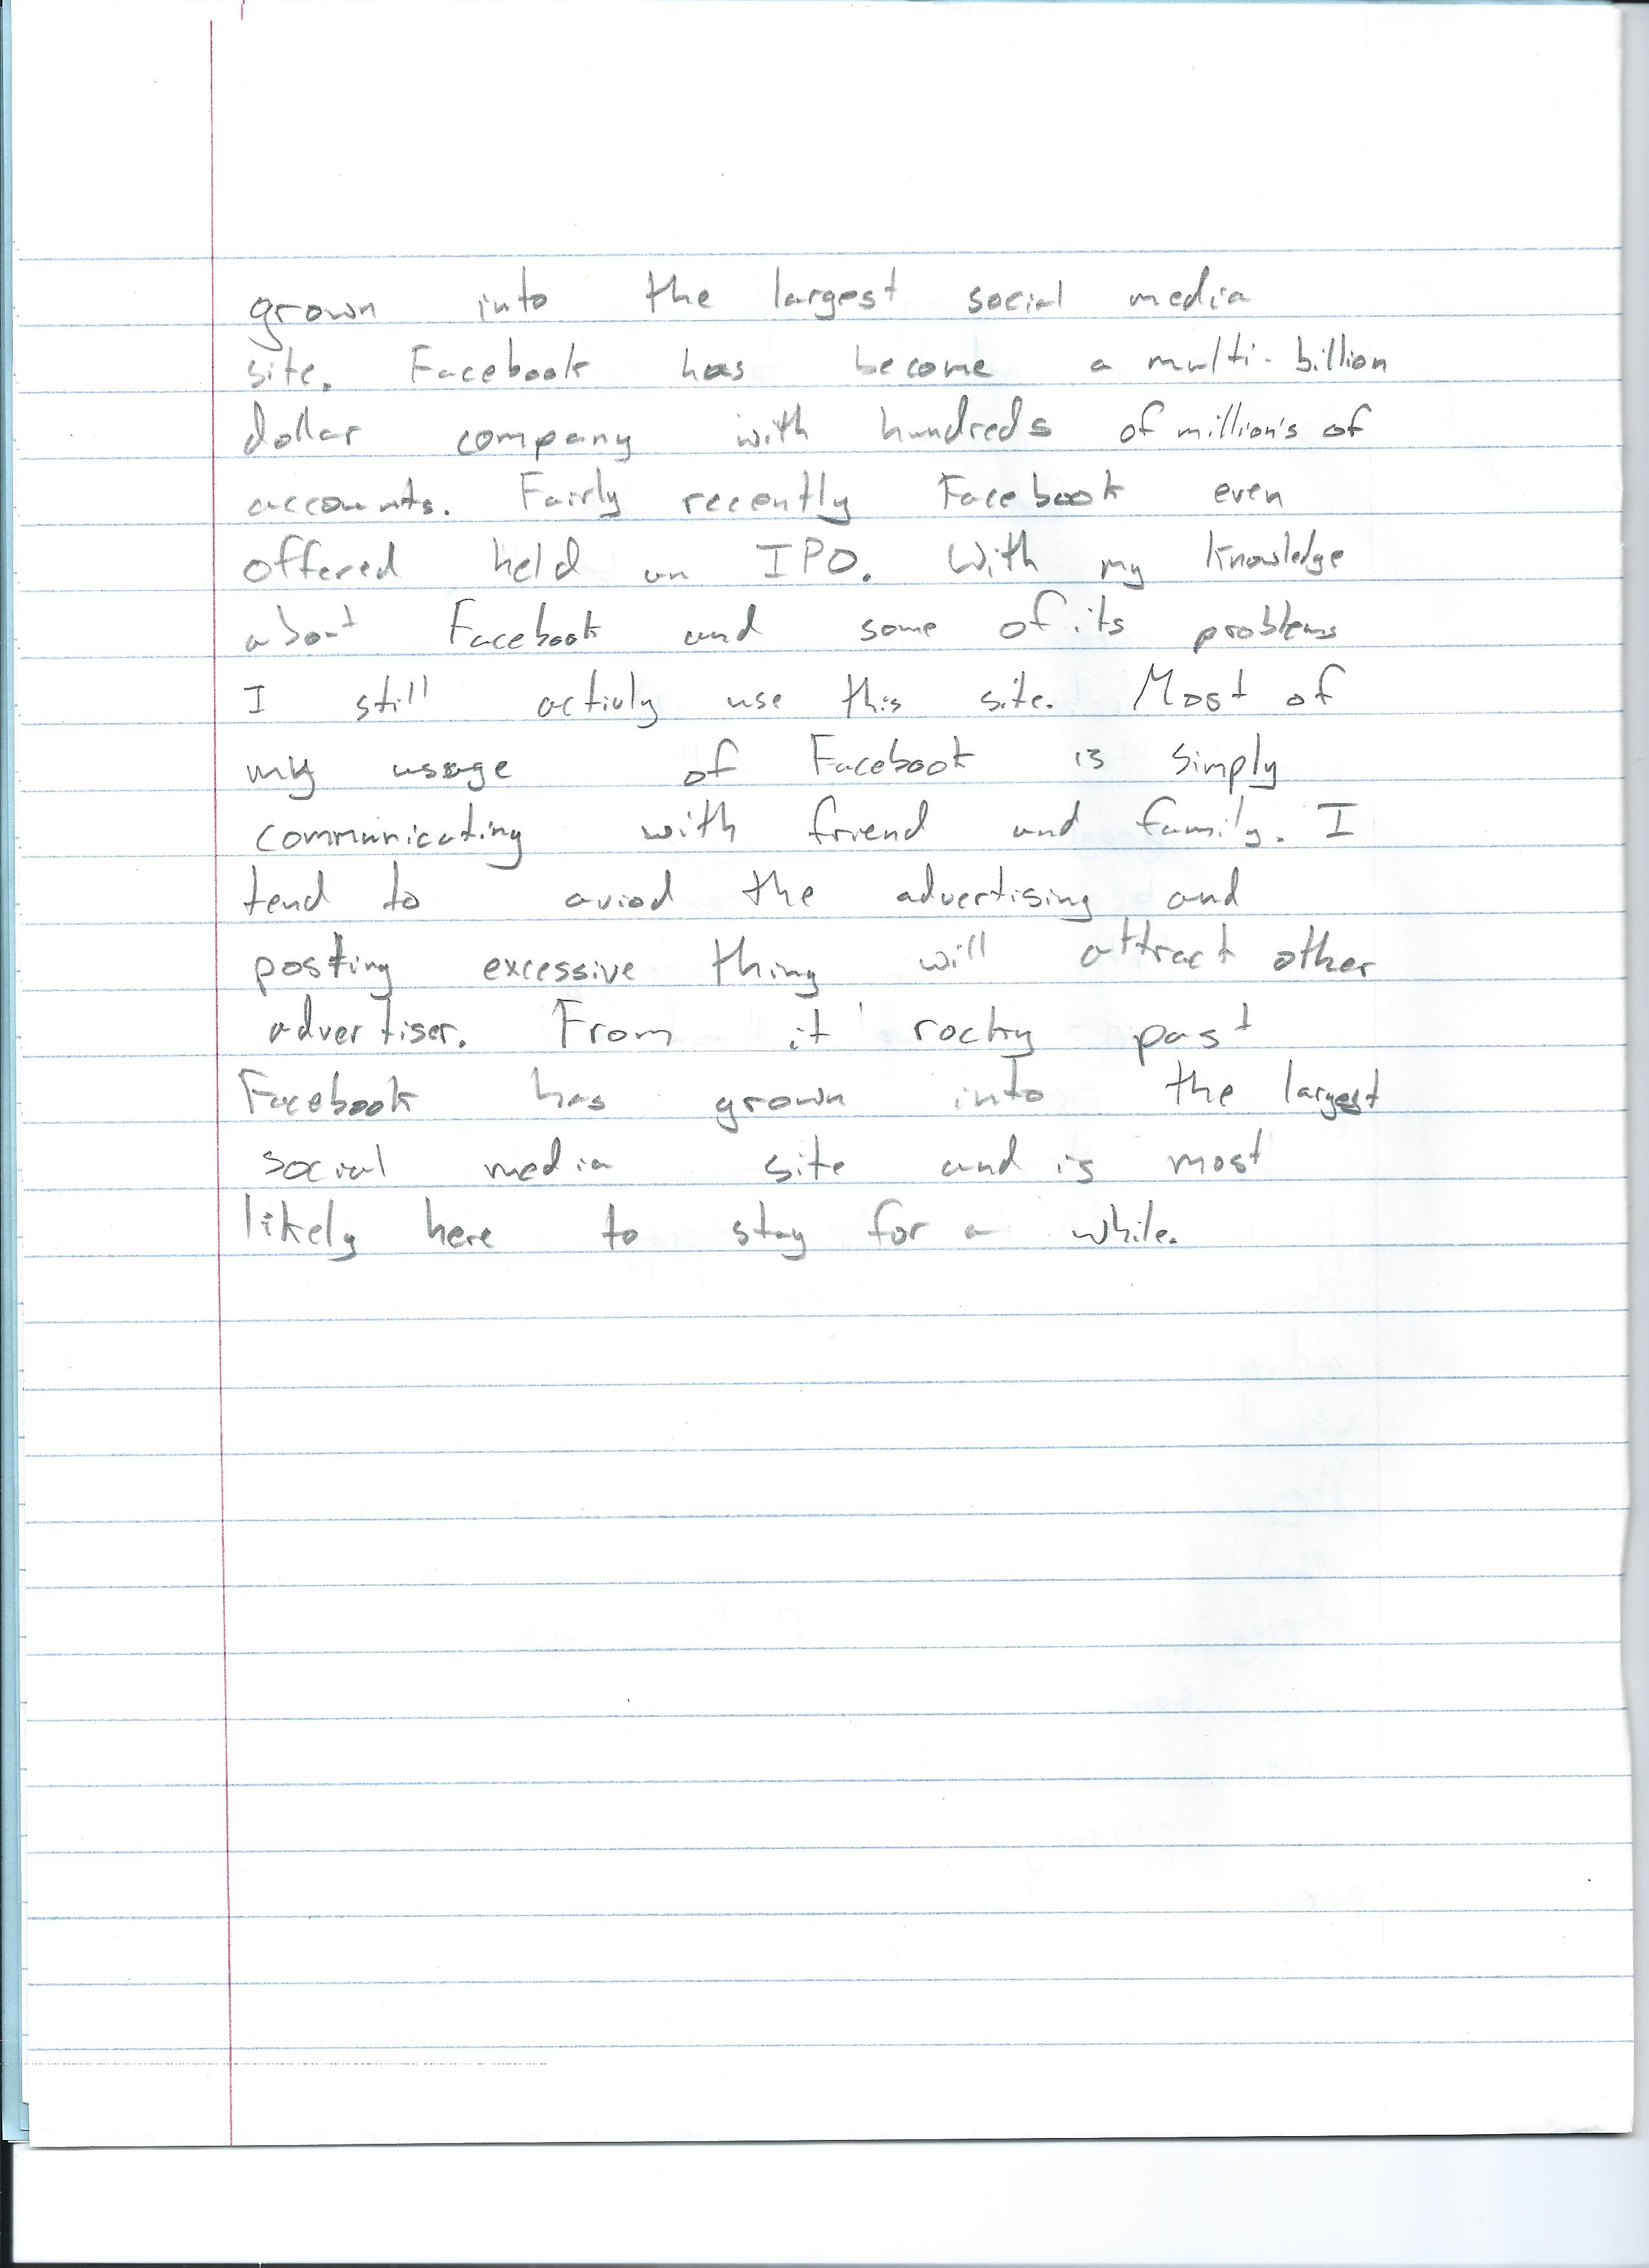 grown into the largest social media
site. Facebook has become a multi-billion
dollar company with hundreds of million's of
accounts. Fairly recently Facebook even
offered held an IPO. With my knowledge
about Facebook and some of its problems
I still activly use this site. Most of
my usage of Facebook is simply
communicating with friend and family. I
tend to aviod the advertising and
posting excessive thing will attract other
advertiser. From it rocky past
Facebook has grown into the largest
social media site and is most
likely here to stay for a while.